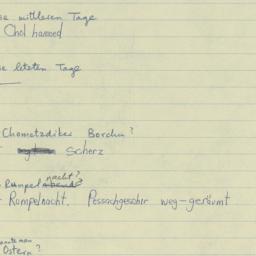 mittleren Tage
Chol hamoed
letzten Tage
Chometzdiker Borchu?
Scherz
nacht?
Rumpelabend?
Rumpelnacht. Pessachgeschir weg-geräumt
Ostern?